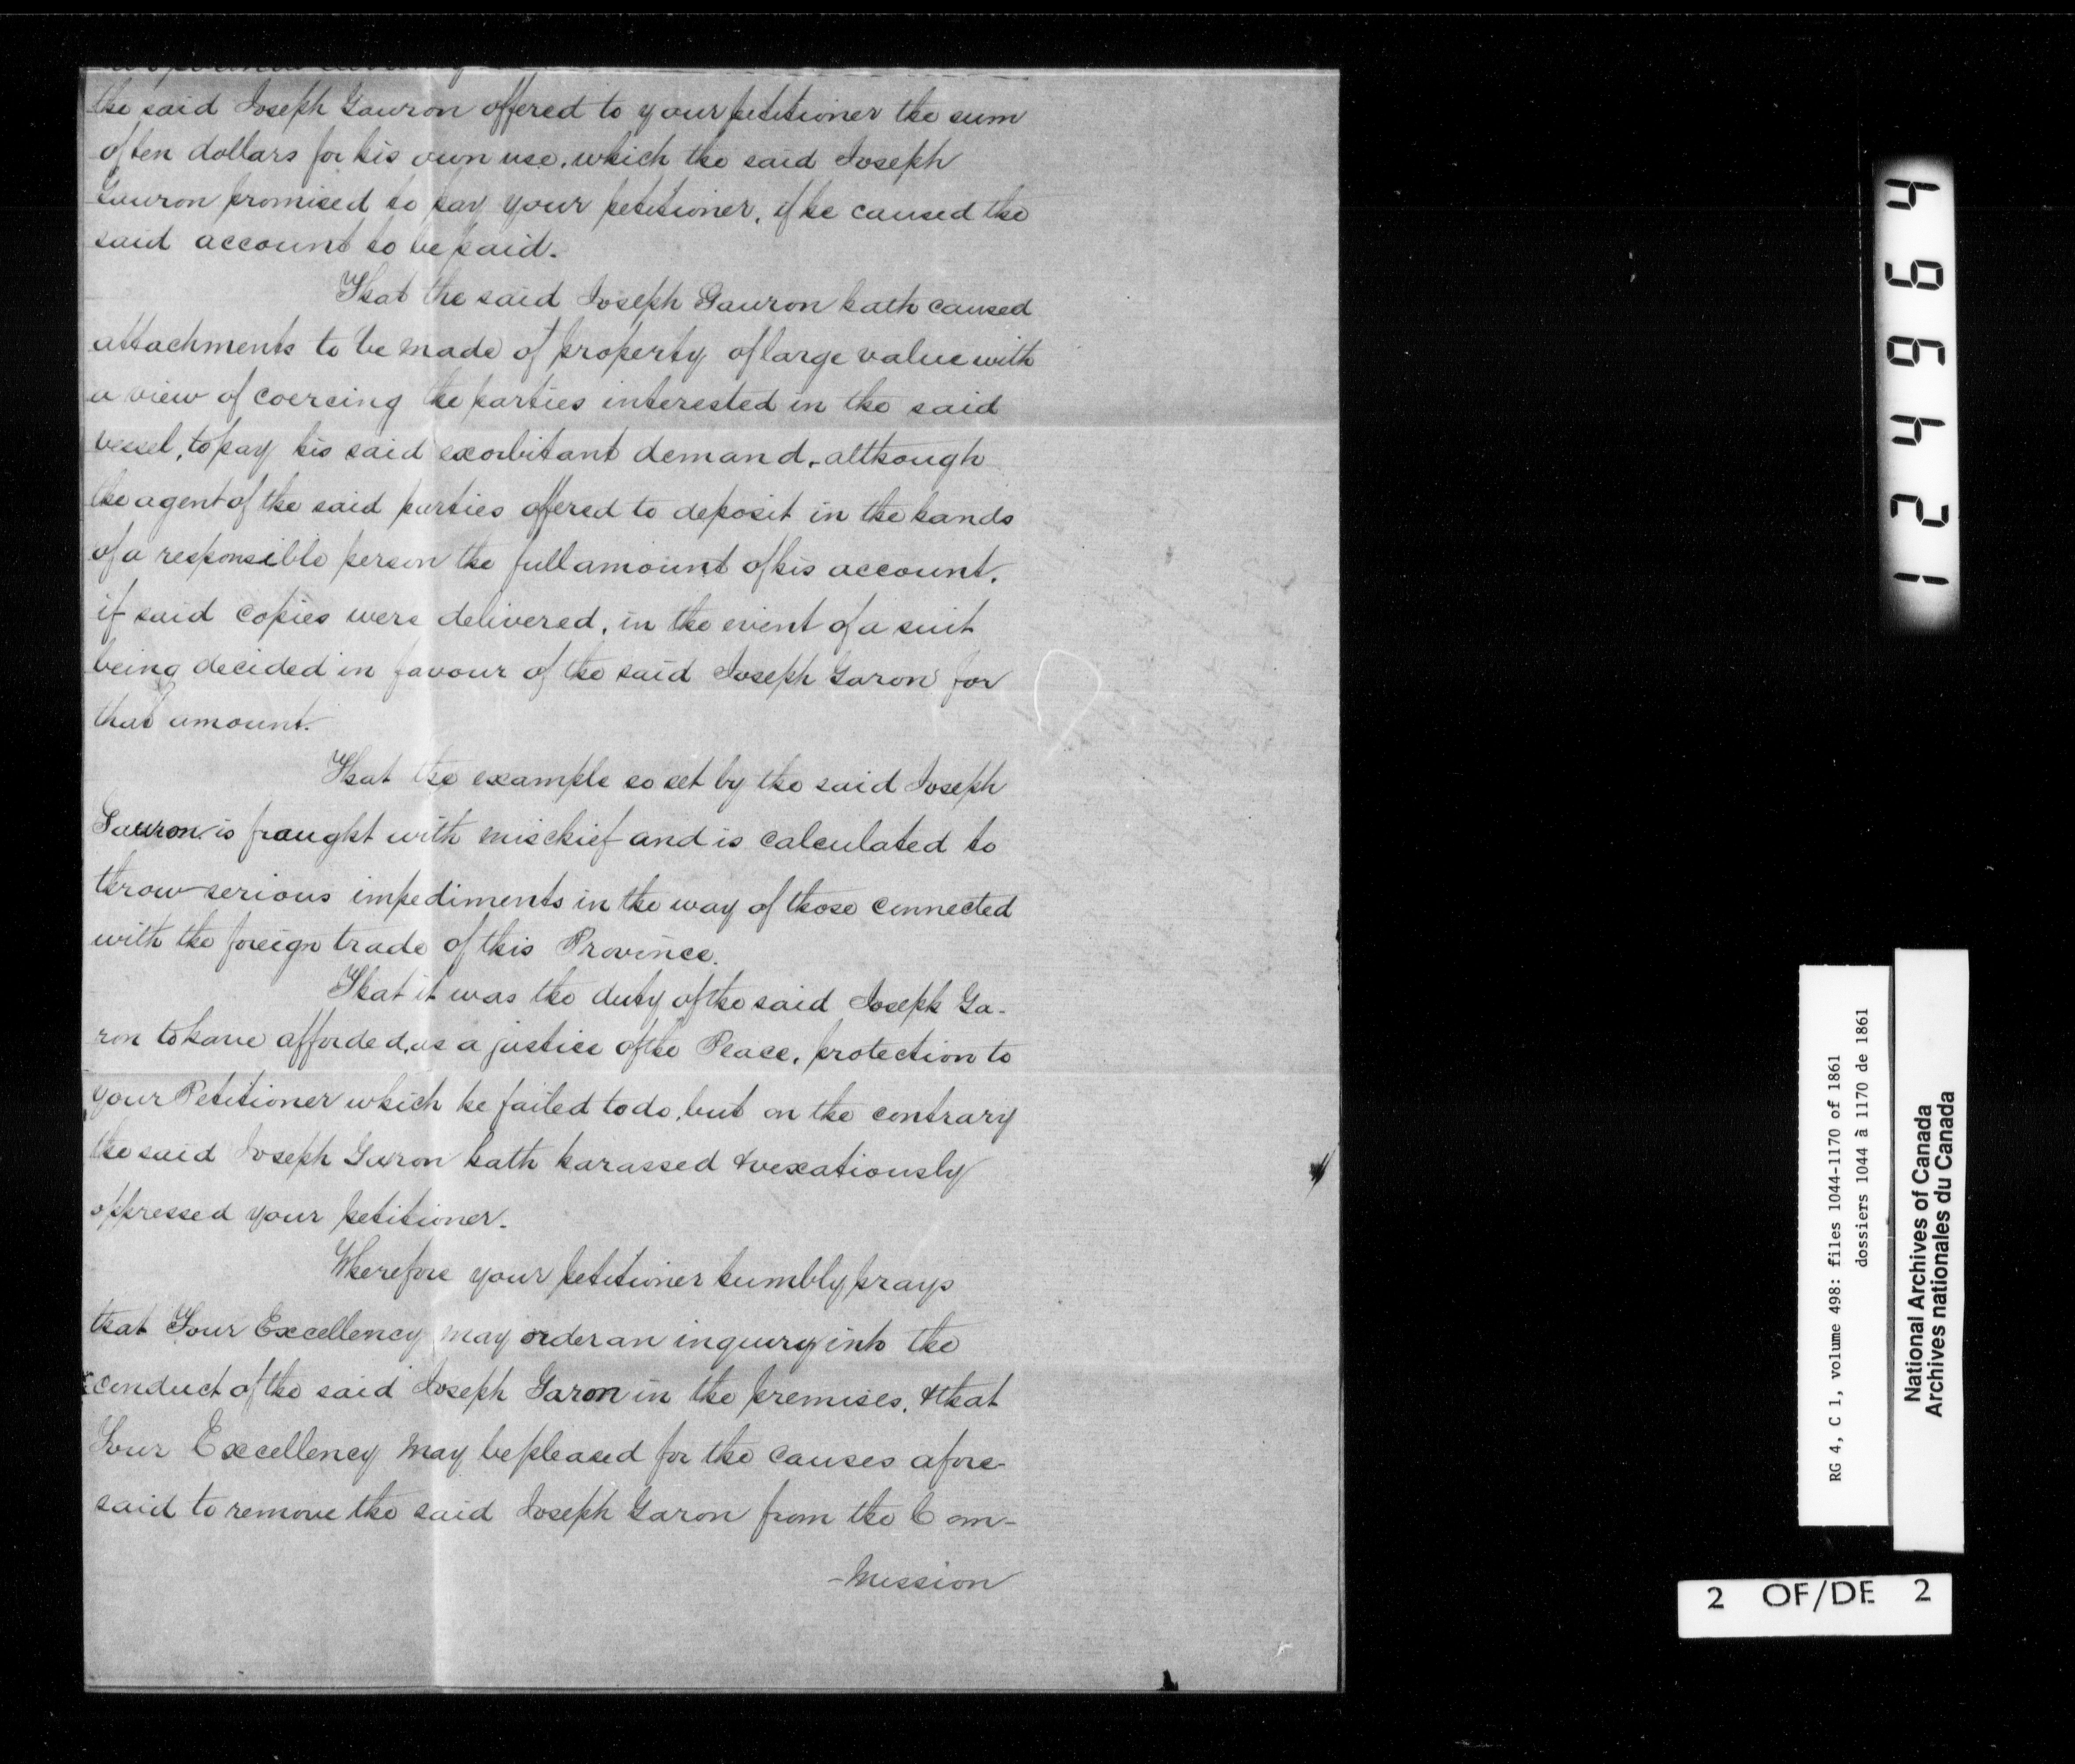 the said Joseph Gauron offered to your petitioner the sum
of ten dollars for his own use, which the said Joseph
Gauron promised to pay your petitioner, if he caused the
said account to be paid.
That the said Joseph Gauron hath caused
attachments to be made of property of large value with
a view of coercing the parties interested in the said
vessel, to pay his said exorbitant demand, although
the agent of the said parties offered to deposit in the hands
of a responsible person the full amount of his account,
if said copies were delivered, in the event of a suit
being decided in favour of the said Joseph Garon for
that amount.
That the example so set by the said Joseph
Gauron is fraught with mischief and is calculated to
throw serious impediments in the way of those connected
with the foreign trade of this Province.
That it was the duty of the said Joseph Ga-
ron to have afforded, as a justice of the Peace, protection to
your Petitioner which he failed to do, but on the contrary
the said Joseph Garon hath harassed & vexatiously
oppressed your petitioner.
Wherefore your petitioner humbly prays
that Your Excellency may order an inquiry into the
conduct of the said Joseph Garon in the premises, & that
Your Excellency may be pleased for the causes afore-
said to remove the said Joseph Garon from the Com-
-mission
124694
RG 4, C 1, volume 498: files 1044-1170 of 1861
dossiers 1044 à 1170 de 1861
National Archives of Canada
Archives nationales du Canada
2 OF/DE 2